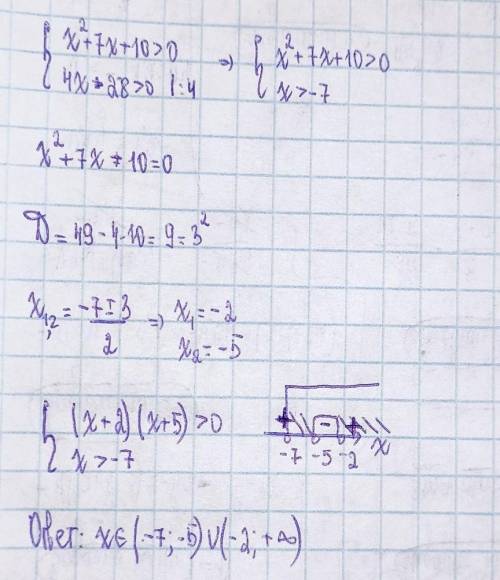 { x²+7x+10>0 => { x²+7x+10>0
{ 4x+28>0 |:4 { x>-7
x²+7x+10=0
D=49-4·10=9=3²
x₁,₂ = (-7±3)/2 => x₁=-2
x₂=-5
{ (x+2)(x+5)>0
{ x>-7
+ - +
-7 -5 -2 x
Ответ: x∈(-7;-5)∪(-2;+∞)